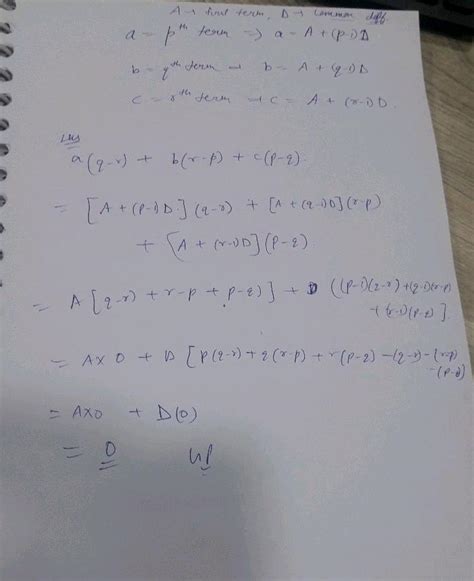 A = first term, D = Common diff.
a = pth term => a = A + (p-1)D
b = qth term => b = A + (q-1)D
c = rth term => c = A + (r-1)D.
LHS
a(q-r) + b(r-p) + c(p-q).
= [A + (p-1)D](q-r) + [A + (q-1)D](r-p)
+ [A + (r-1)D](p-q)
= A[q-r) + r-p + p-q)] + D ((p-1)(q-r)+(q-1)(r-p)
+(r-1)(p-q)].
= A×0 + D [p(q-r)+q(r-p)+r(p-q)-(q-r)-(r-p)
-(p-q)
= A×0 + D(0)
= 0